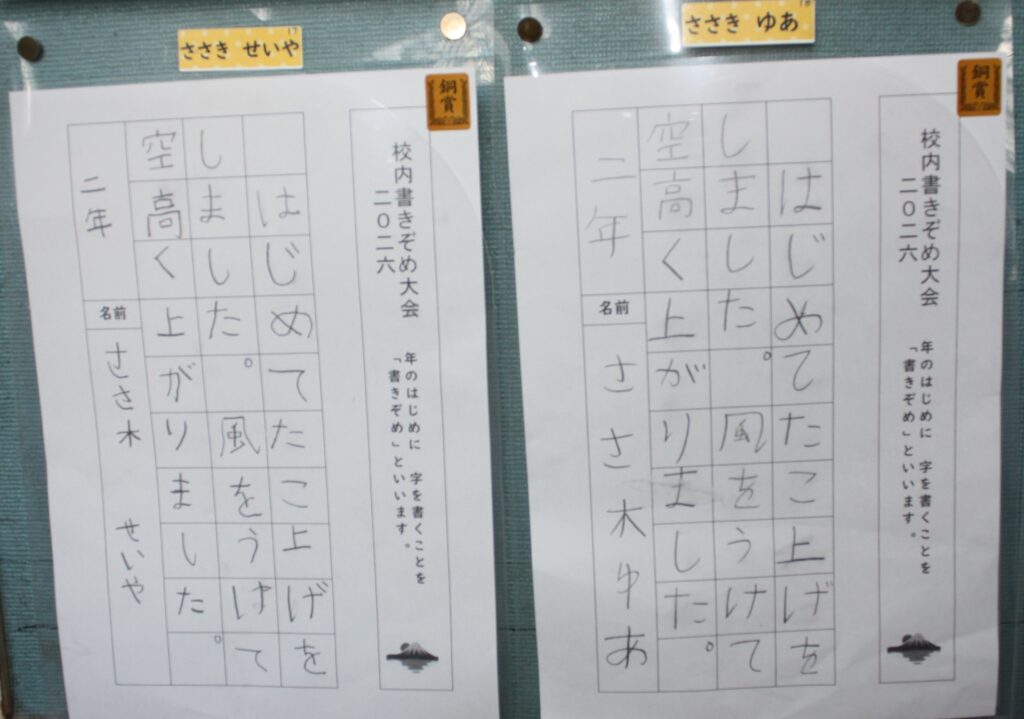 17
ささき せいや
銅賞
校内書きぞめ大会
二〇二六
年のはじめに 字を書くことを
「書きぞめ」といいます。
はじめてたこ上げを
しました。風をうけて
空高く上がりました。
二年
名前
ささ木 せいや
18
ささき ゆあ
銅賞
校内書きぞめ大会
二〇二六
年のはじめに 字を書くことを
「書きぞめ」といいます。
はじめてたこ上げを
しました。風をうけて
空高く上がりました。
二年
名前
ささ木 ゆあ